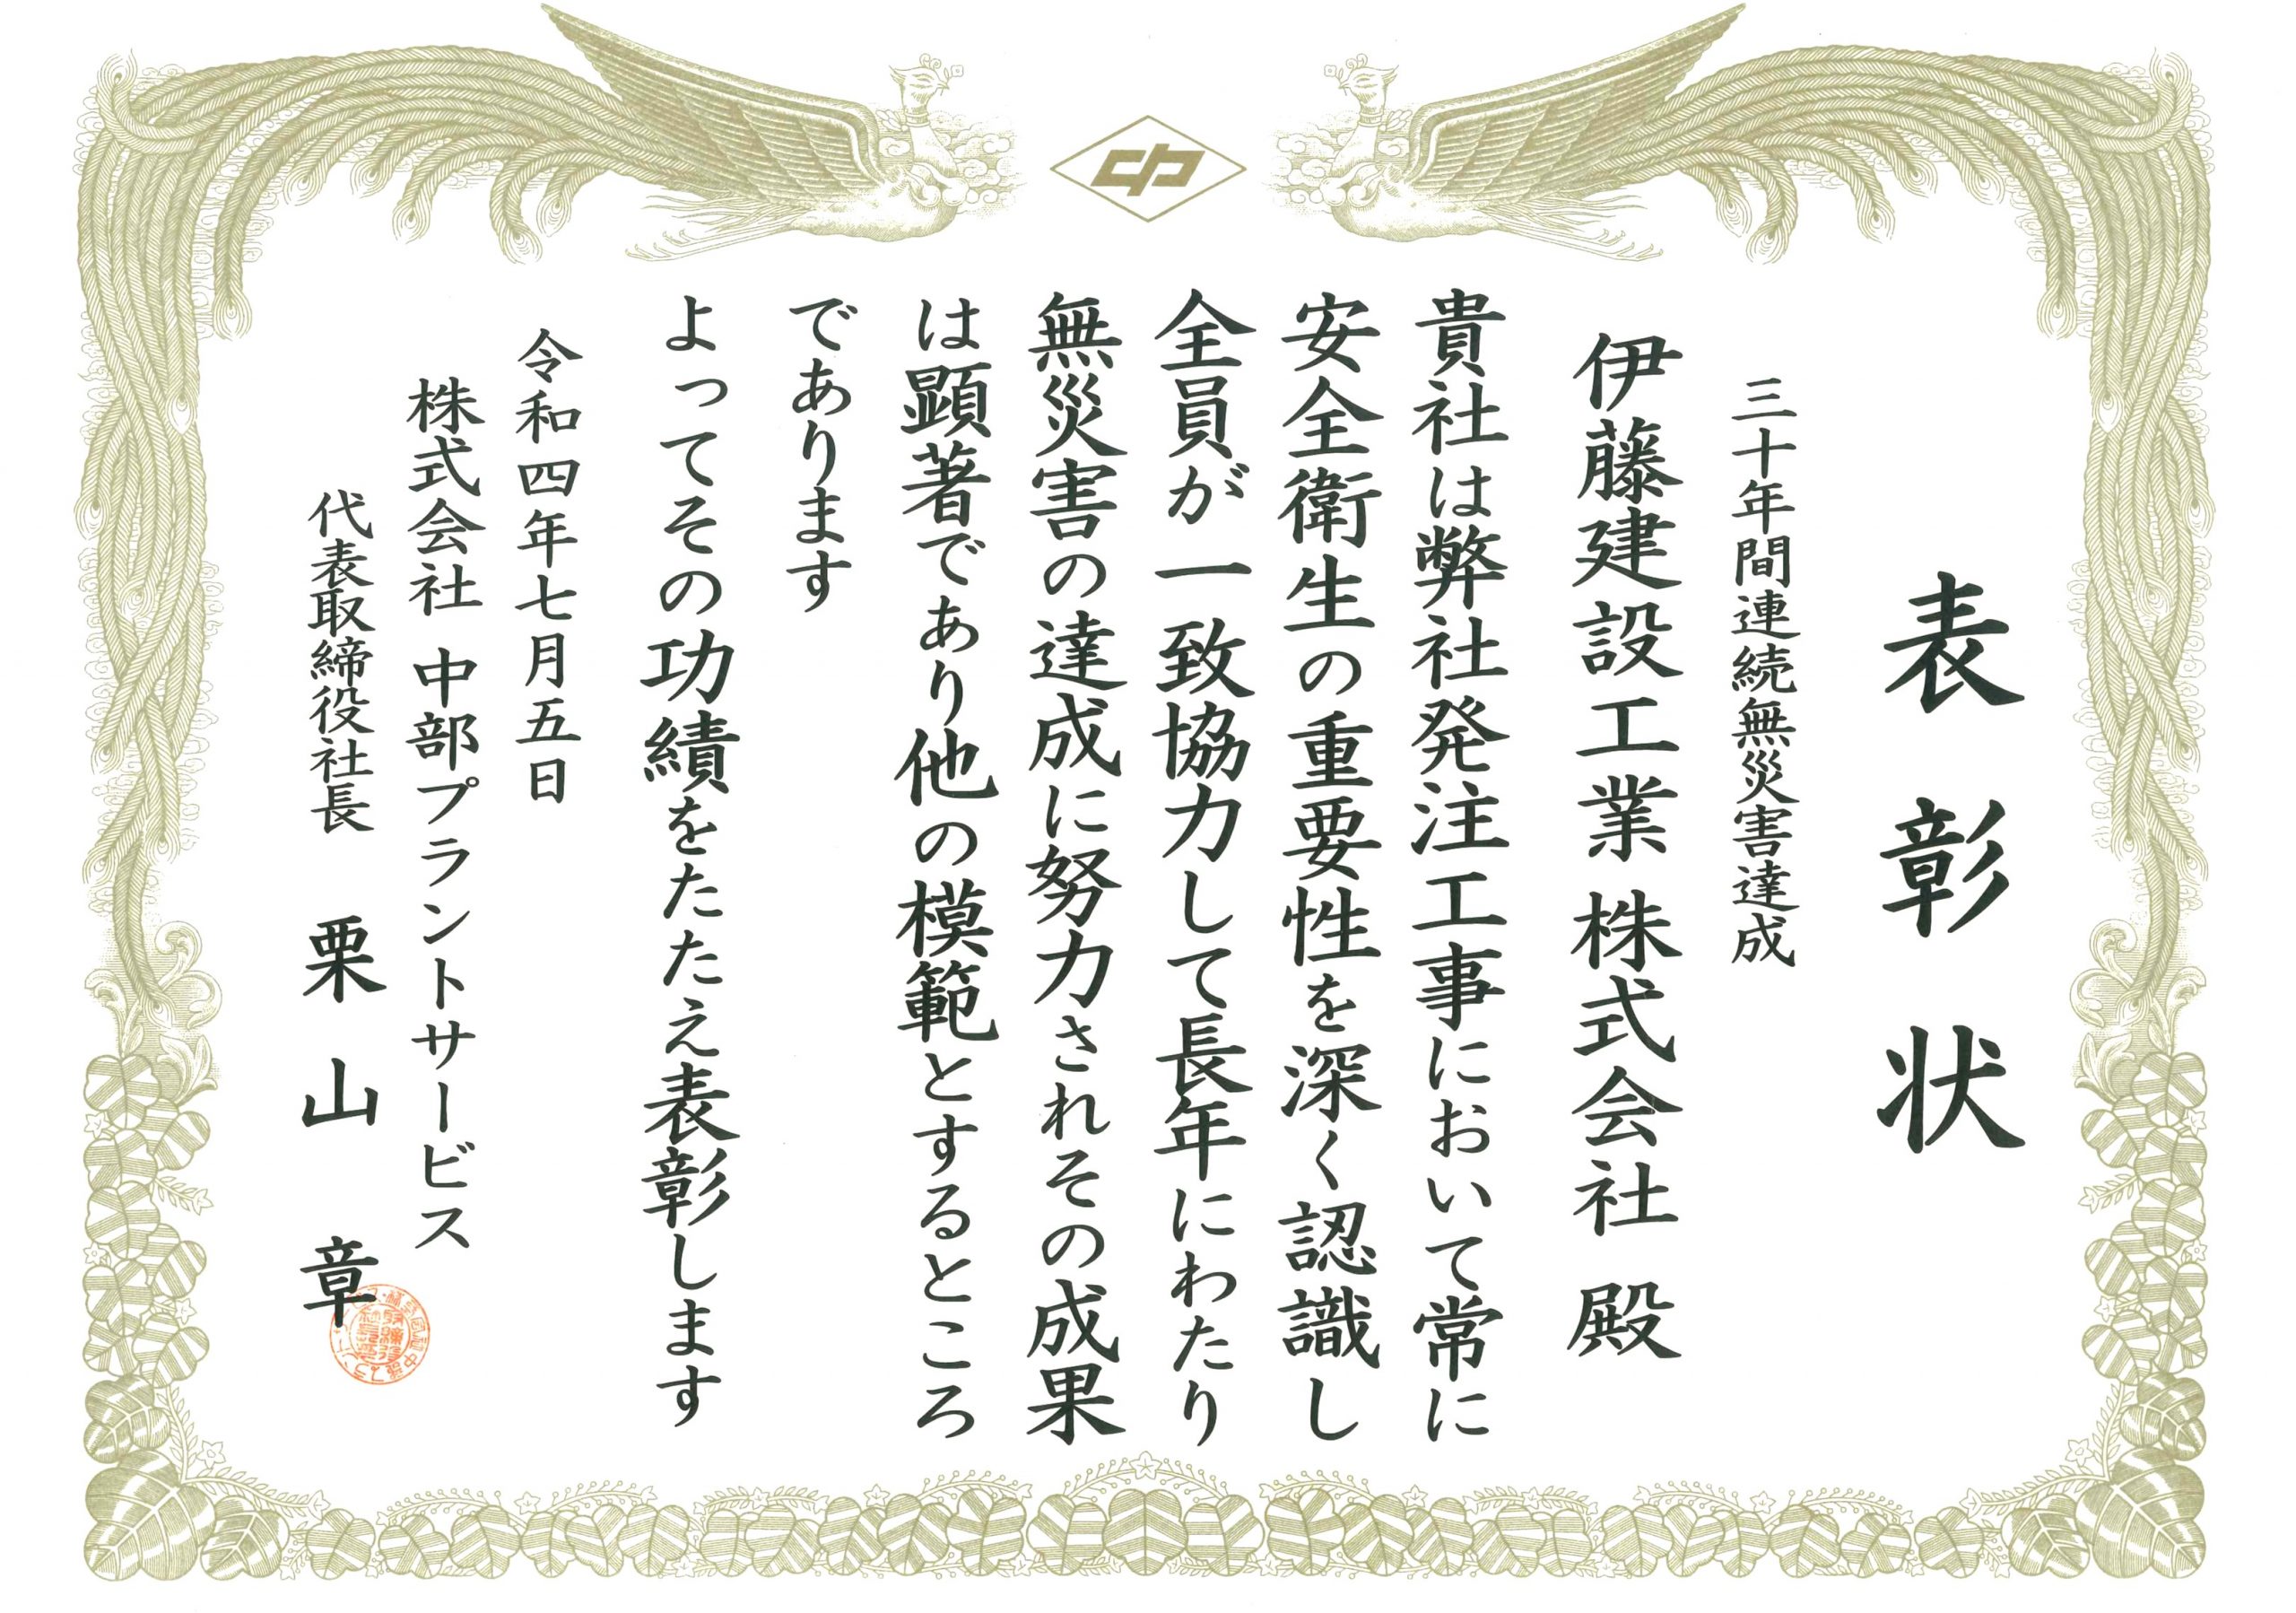 表彰状
三十年間連続無災害達成
伊藤建設工業株式会社 殿
貴社は弊社発注工事において常に
安全衛生の重要性を深く認識し
全員が一致協力して長年にわたり
無災害の達成に努力されその成果
は顕著であり他の模範とするところ
であります
よってその功績をたたえ表彰します
令和四年七月五日
株式会社 中部プラントサービス
代表取締役社長 栗山 章